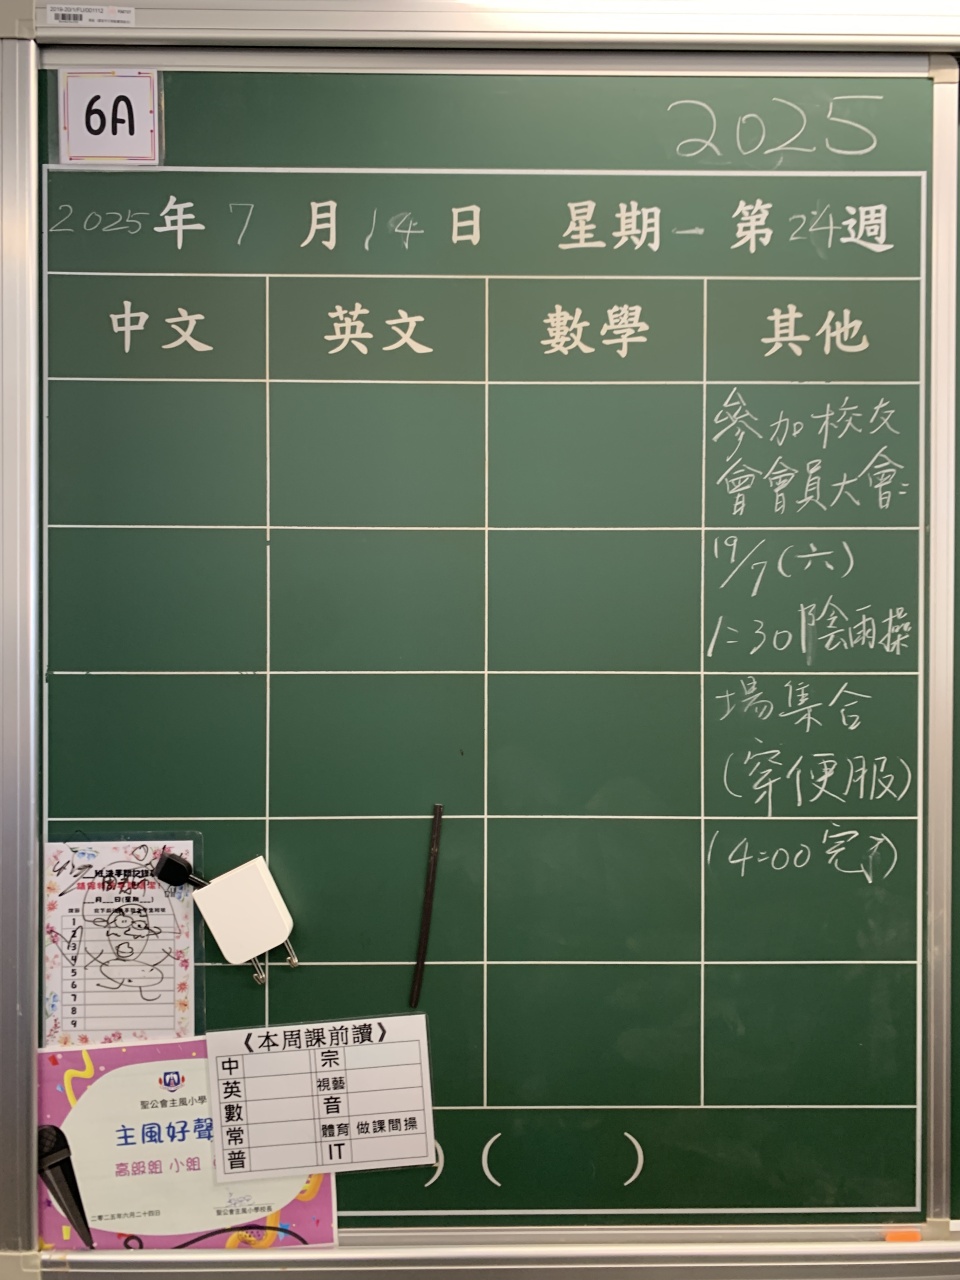 2019-20/1/FU/001112
6A
2025
2025年7月14日 星期一 第24週
中文 英文 數學 其他
參加校友
會會員大會:
19/7(六)
1:30陰雨操
場集合
(穿便服)
(4:00完)
月 日(星期 )
1
2
3
4
5
6
7
8
9
《本周課前讀》
中 宗
英 視藝
數 音
常 體育 做課間操
普 IT
聖公會主風小學
主風好聲
高級組 小組
二零二五年六月二十四日
聖公會主風小學校長
) ( )